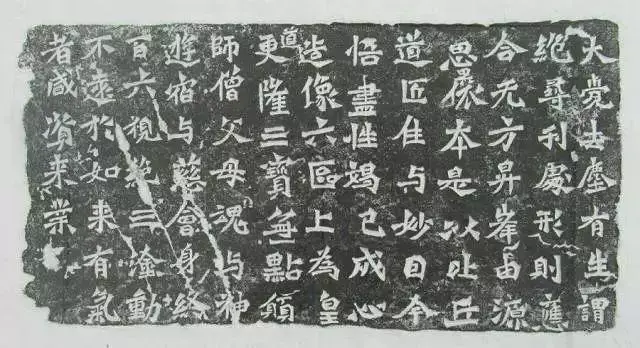 大覺去塵有生謂
絕尋刹處形則應
合无方昇峯由源
思本是以比丘
道匠住与妙目今
悟盡性竭己成心
造像六區上為皇
道更隆三寶無點願
師僧父母魂与神
遊宿与慈會身終
百六視絕三塗動
不遠於如来有氣
者咸資来業